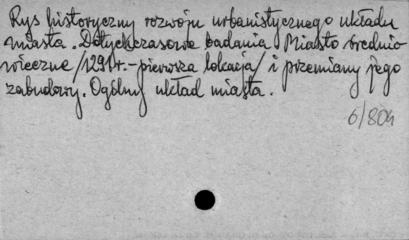 Rys historyczny rozwoju urbanistycznego układu
miasta. Dotychczasowe badania. Miasto średnio-
wieczne /1291r.-pierwsza lokacja/ i przemiany jego
zabudowy. Ogólny układ miasta.
6/804